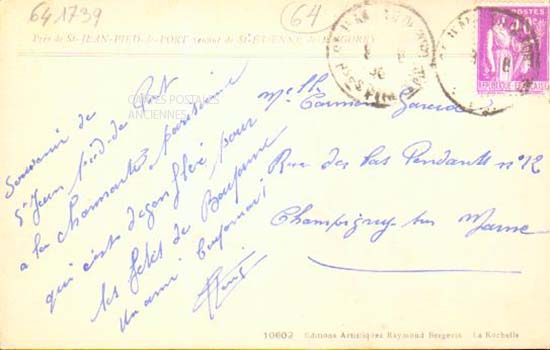 641739
64
Près de St-JEAN-PIED-de-PORT venant de St-ETIENNE de BAÏGORRY
POSTES
REPUBLIQUE FRANÇAISE
CARTES POSTALES
ANCIENNES
Souvenir de
St Jean pied-de-Port
a la charmante parisienne
qui s'est pour
les fêtes de Bayonne
un ami
Melle Carmen
Rue des bas Pendants n° 12
Champigny sur Marne
10602 Editions Artistiques Raymond Bergevin La Rochelle